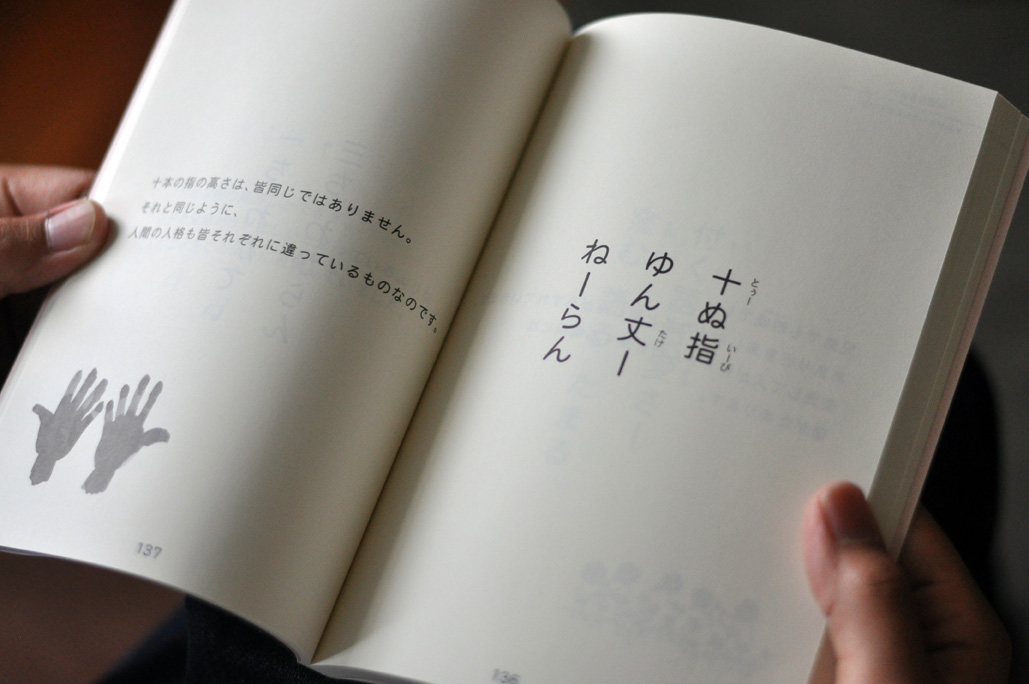 十ぬ指
とぅー
いーび
ゆん丈ー
たけ
ねーらん
136
十本の指の高さは、皆同じではありません。
それと同じように、
人間の人格も皆それぞれに違っているものなのです。
137